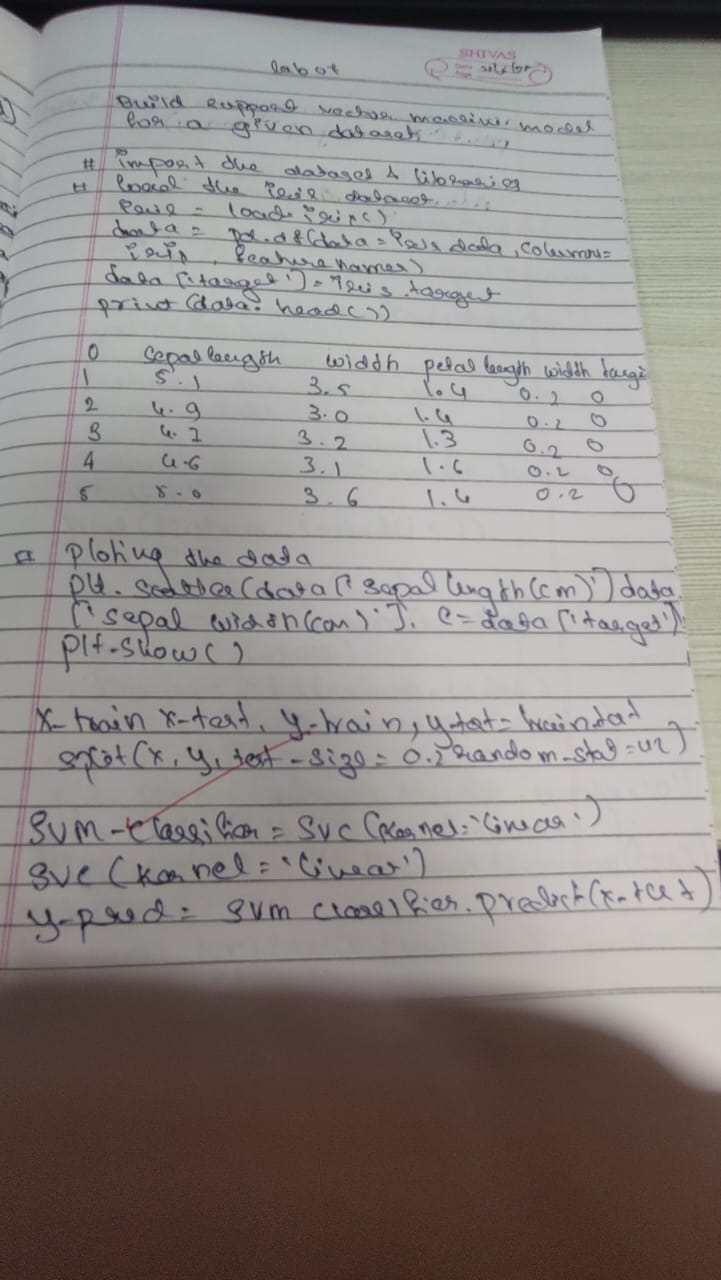 SHIVAS
Build support vector machine model
for a given dataset
# import the datasets & libraries
# load the iris dataset
iris = load iris()
data = pd.df(data = iris data, columns=
iris, feature names)
data ['target'] = iris.target
print (data. head())
0 sepal length width petal length width
1 5.1 3.5 1.4 0.2 0
2 4.9 3.0 1.4 0.2 0
3 4.7 3.2 1.3 0.2 0
4 4.6 3.1 1.6 0.2 0
5 5.0 3.6 1.4 0.2 0
# Ploting the data
plt. scatter (data ['sepal length(cm)'] data
['sepal width(cm)'], c= data ['target'])
plt.show()
X-train x-test, y-train, y-test=
split (x, y, test-size= 0.2 random-stat=42)
SVM-Classifier = SVC (Kernel='linear')
SVC (Kernel = 'linear')
y-pred = SVM classifier. predict (x-test)